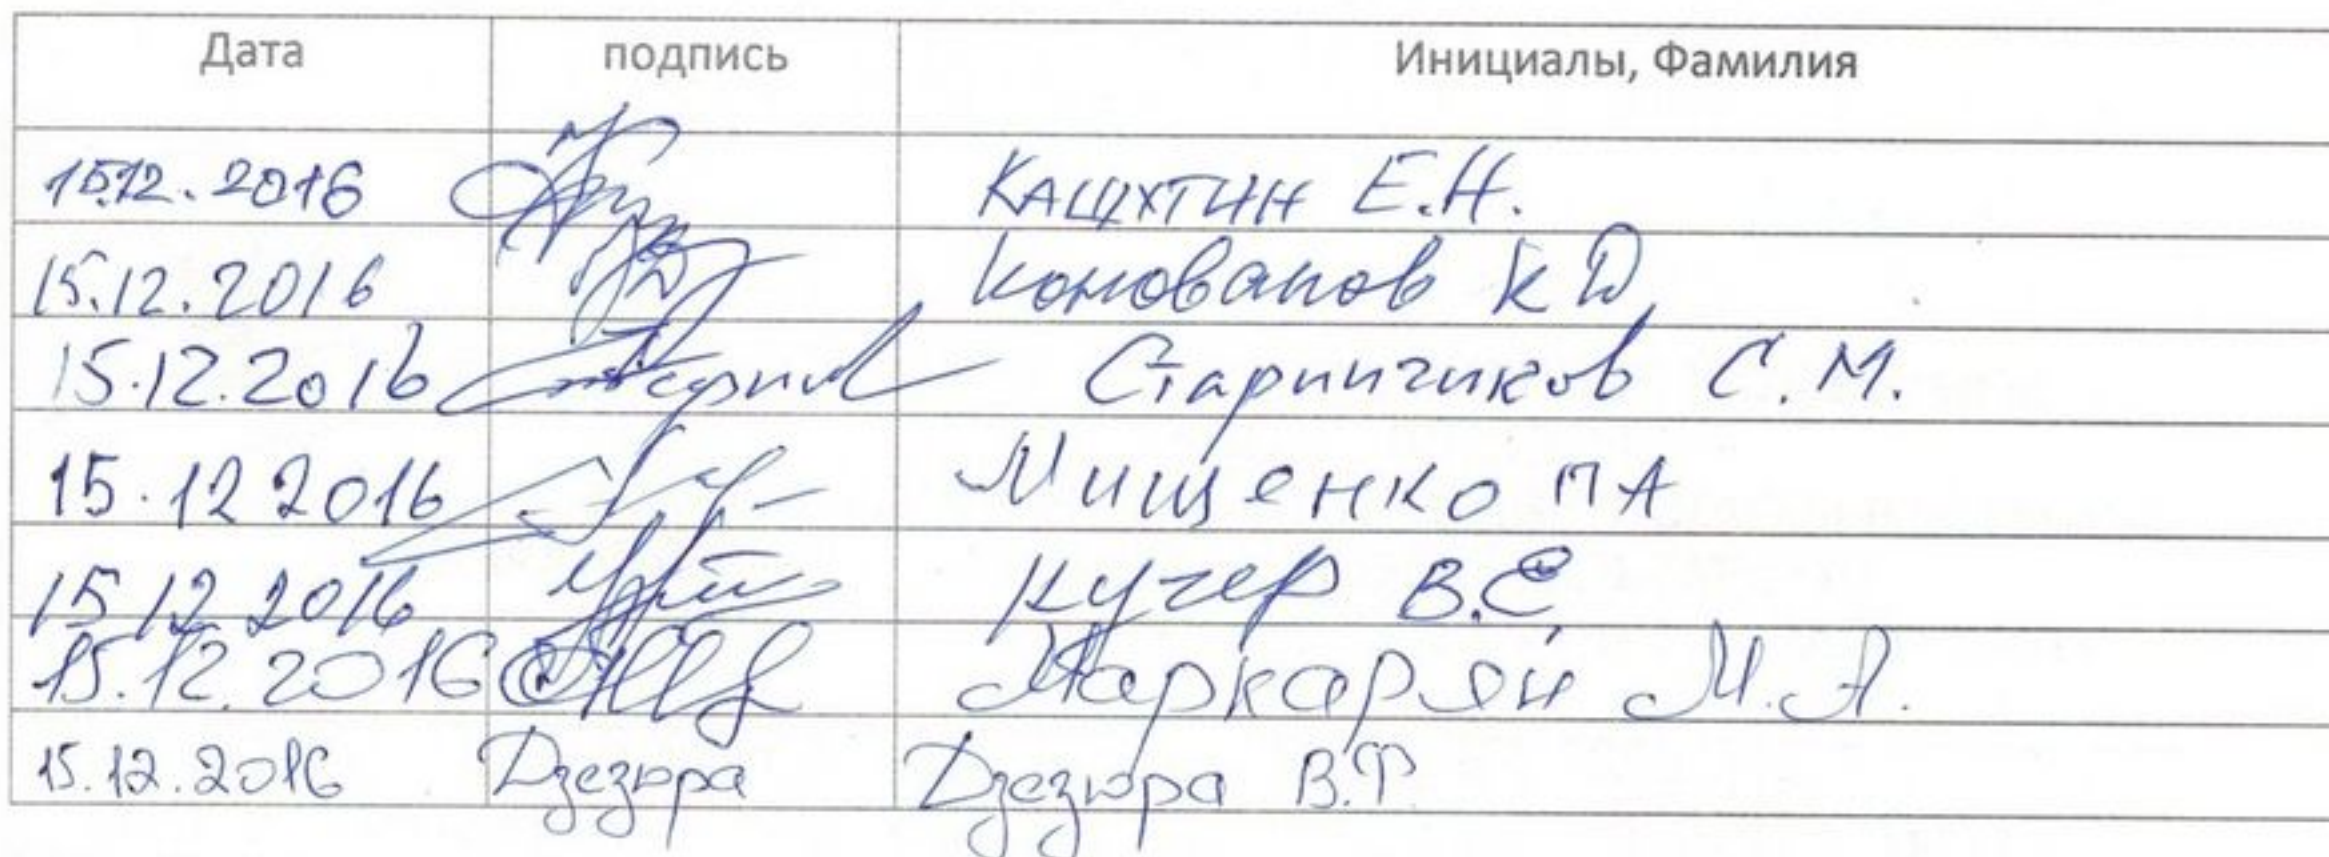 Дата подпись Инициалы, Фамилия
15.12.2016 Е.Н.
15.12.2016 Коновалов К Д
15.12.2016 С.М.
15.12 2016 Мищенко П А
15 12 2016 Кучер В.Е.
15.12.2016 Маркарян М.А.
15.12.2016 Дзезюра Дзезюра В.Ф.